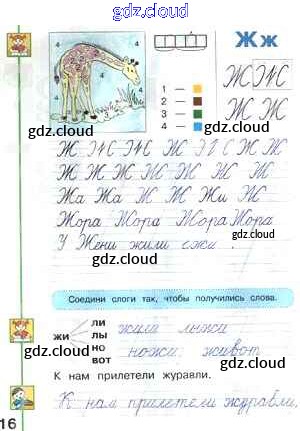 gdz.cloud
Ж ж
4 4
4 4
gdz.cloud
1 —
2 —
3 —
4 —
Ж Ж
Ж Ж
gdz.cloud
Ж Ж Ж Ж Ж Ж Ж
gdz.cloud
Ж Ж Ж Ж Ж Ж Ж
gdz.cloud gdz.cloud
Жа Жа Ж Ж Жи Ж
Жора Жора Жора Жора
У Жени жили ежи.
gdz.cloud gdz.cloud
Соедини слоги так, чтобы получились слова.
жи
ли
лы
но
вот
жили лыжи
ножи живот
gdz.cloud gdz.cloud
К нам прилетели журавли.
К нам прилетели журавли.
16
gdz.cloud